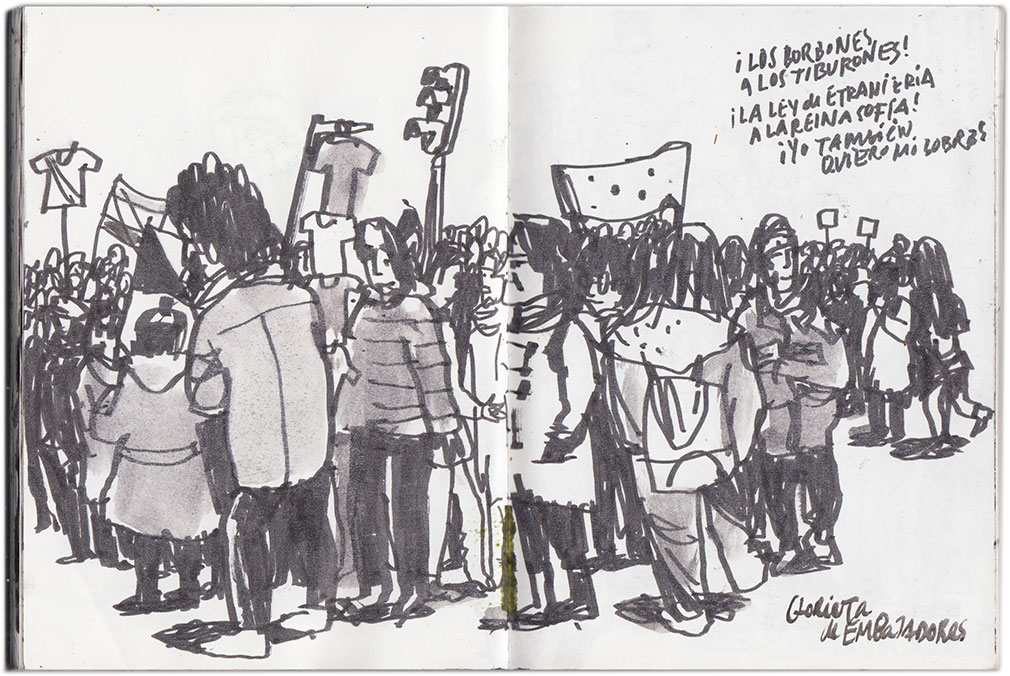 ¡LOS BORBONES
A LOS TIBURONES!
¡LA LEY de ETRANJERIA
A LA REINA SOFÍA!
¡YO TAMBIÉN
QUIERO MI SOBRES
GLORIETA
de EMBAJADORES